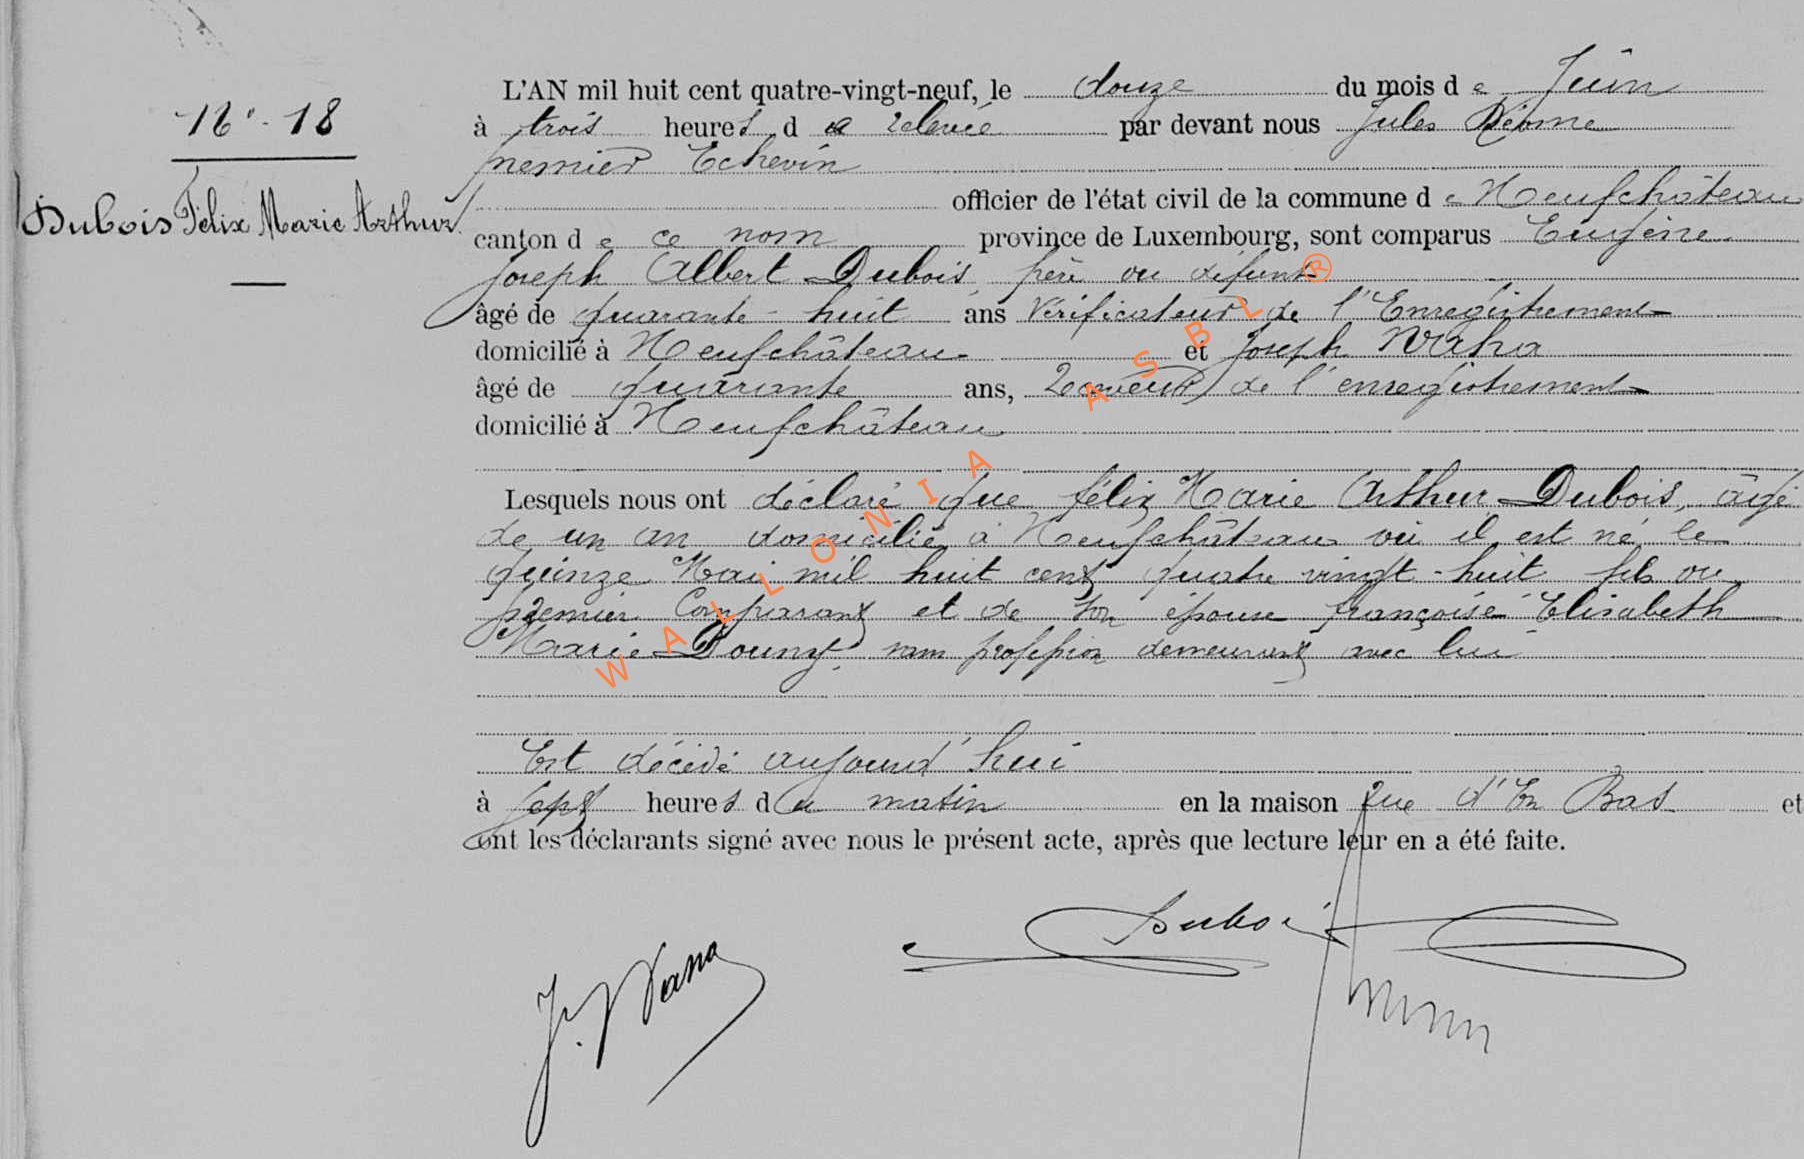 N° 18
Dubois Félix Marie Arthur
L'AN mil huit cent quatre-vingt-neuf, le douze du mois de Juin
à trois heures de relevée par devant nous Jules
premier Echevin
officier de l'état civil de la commune de Neufchâteau
canton de ce nom province de Luxembourg, sont comparus Eugène
Joseph Albert Dubois, père du défunt
âgé de quarante-huit ans Vérificateur de l'Enregistrement
domicilié à Neufchâteau et Joseph Waha
âgé de quarante ans, Receveur de l'enregistrement
domicilié à Neufchâteau
Lesquels nous ont déclaré que félix Marie Arthur Dubois, âgé
de un an domicilié à Neufchâteau où il est né le
quinze Mai mil huit cent quatre vingt-huit fils du
premier Comparant et de son épouse françoise Elisabeth
Marie sans profession demeurant avec lui
Est décédé aujourd'hui
à sept heures du matin en la maison rue d'En Bas et
ont les déclarants signé avec nous le présent acte, après que lecture leur en a été faite.
Dubois
J. Waha
WALLONIA ASBL ®